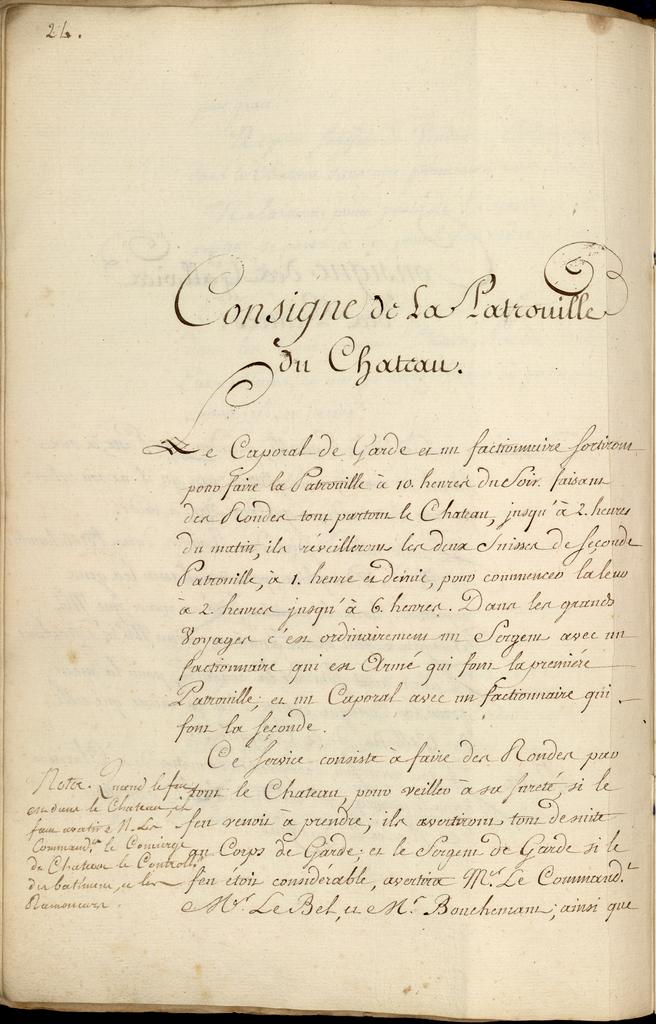 24.
Consigne de La Patrouille
du Chateau.
Le Caporal de Garde et un factionnaire sortiront
pour faire la Patrouille à 10. heures du Soir. faisant
des Rondes tout partout le Chateau, jusqu'à 2. heures
du matin, ils réveilleront les deux Suisses de seconde
Patrouille, à 1. heure et demie, pour commencer la leur
à 2. heures jusqu'à 6. heures. Dans les grands
Voyages c'est ordinairement un Sergent avec un
factionnaire qui est Armé qui font la première
Patrouille; et un Caporal avec un factionnaire qui
font la seconde.
Ce service consiste à faire des Rondes par
tout le Chateau, pour veiller à sa sureté, si le
feu venoit à prendre; ils avertiront tout de suite
au Corps de Garde; et le Sergent de Garde si le
feu étoit considerable, avertira Mr. Le Command.t
Mr. Le Bel, et Mr. Bouchemant; ainsi que
Nota. Quand le feu
est dans le Chateau, il
faut avertir M. Le
Command.t le Concierge
du Chateau le Controll.r
du batiment, et les
Ramoneurs.